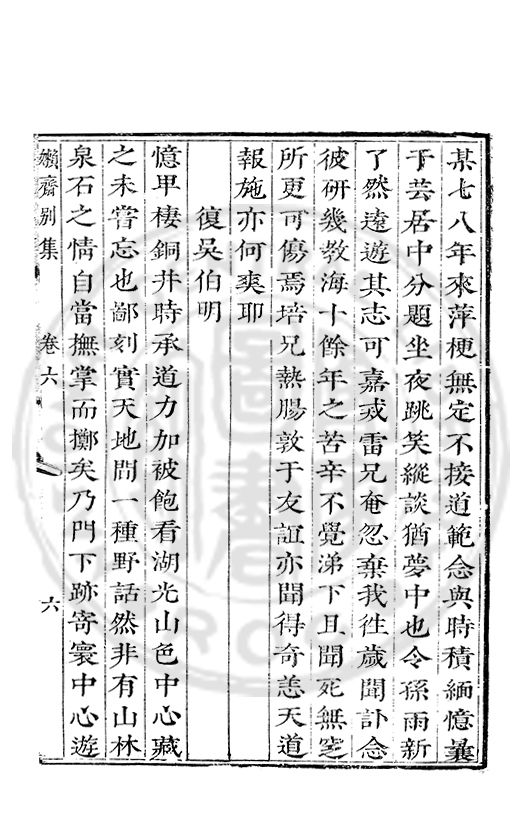 某七八年來萍梗無定不接道範念與時積緬憶曩
于芸居中分題坐夜跳笑縱談猶夢中也令孫雨新
了然遠遊其志可嘉戎雷兄奄忽棄我徃歲聞訃念
彼研幾教海十餘年之苦辛不覺涕下且聞死無窆
所更可傷焉培兄熱腸敦于友誼亦聞得奇恙天道
報施亦何爽耶
復吳伯明
憶甲棲銅井時承道力加被飽看湖光山色中心藏
之未嘗忘也鄙刻實天地間一種野話然非有山林
泉石之情自當撫掌而擲矣乃門下跡寄寰中心遊
嬾齋別集
卷六
六